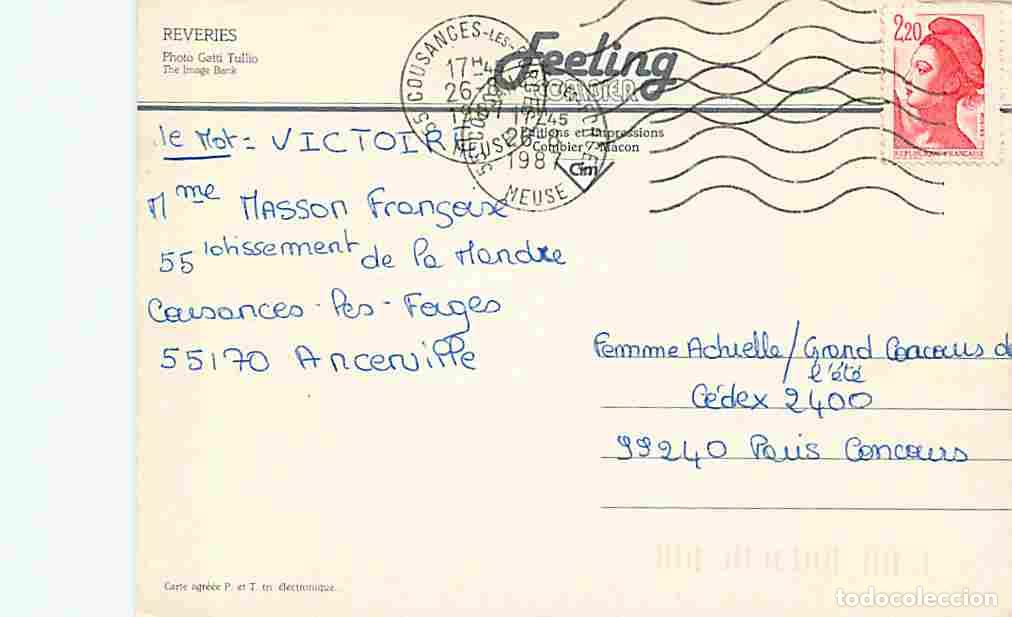 REVERIES
Photo Gatti Tullio
The Image Bank
Feeling
COMBIER
Editions et Impressions
Combier Macon
Cim
55 COUSANCES-LES-
17H45
26-
1987
MEUSE
2,20
REPUBLIQUE FRANÇAISE
le Mot = VICTOIRE
Mme MASSON Françoise
55 lotissement de la Mandre
Cousances-les-Foges
55170 Ancerville
Femme Actuelle/Grand Concours de
l'été
Cédex 2400
99240 Paris Concours
Carte agréée P. et T. tri électronique.
todocoleccion